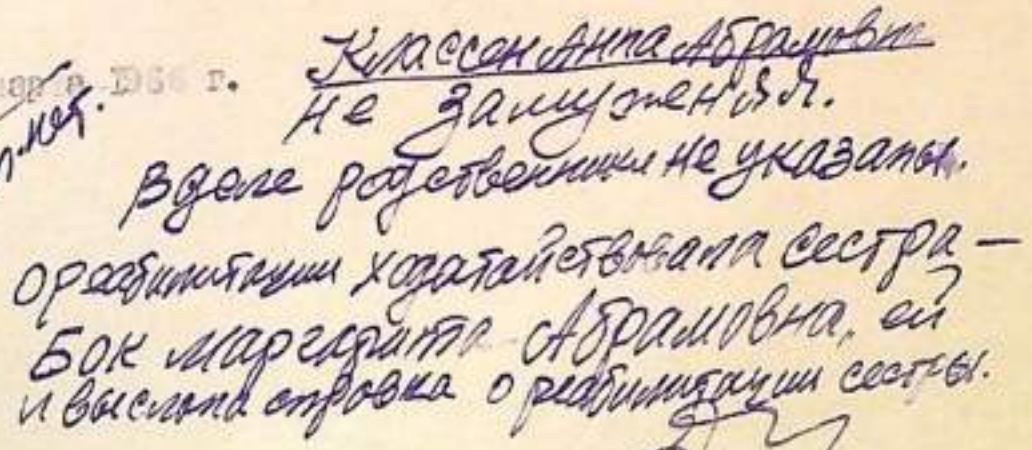 марта 1966 г.
нет.
Классен Анна Абрамовна
не замужняя.
В деле родственники не указаны.
о реабилитации ходатайствовала сестра —
Бок Маргарита Абрамовна, ей
и выслана справка о реабилитации сестры.